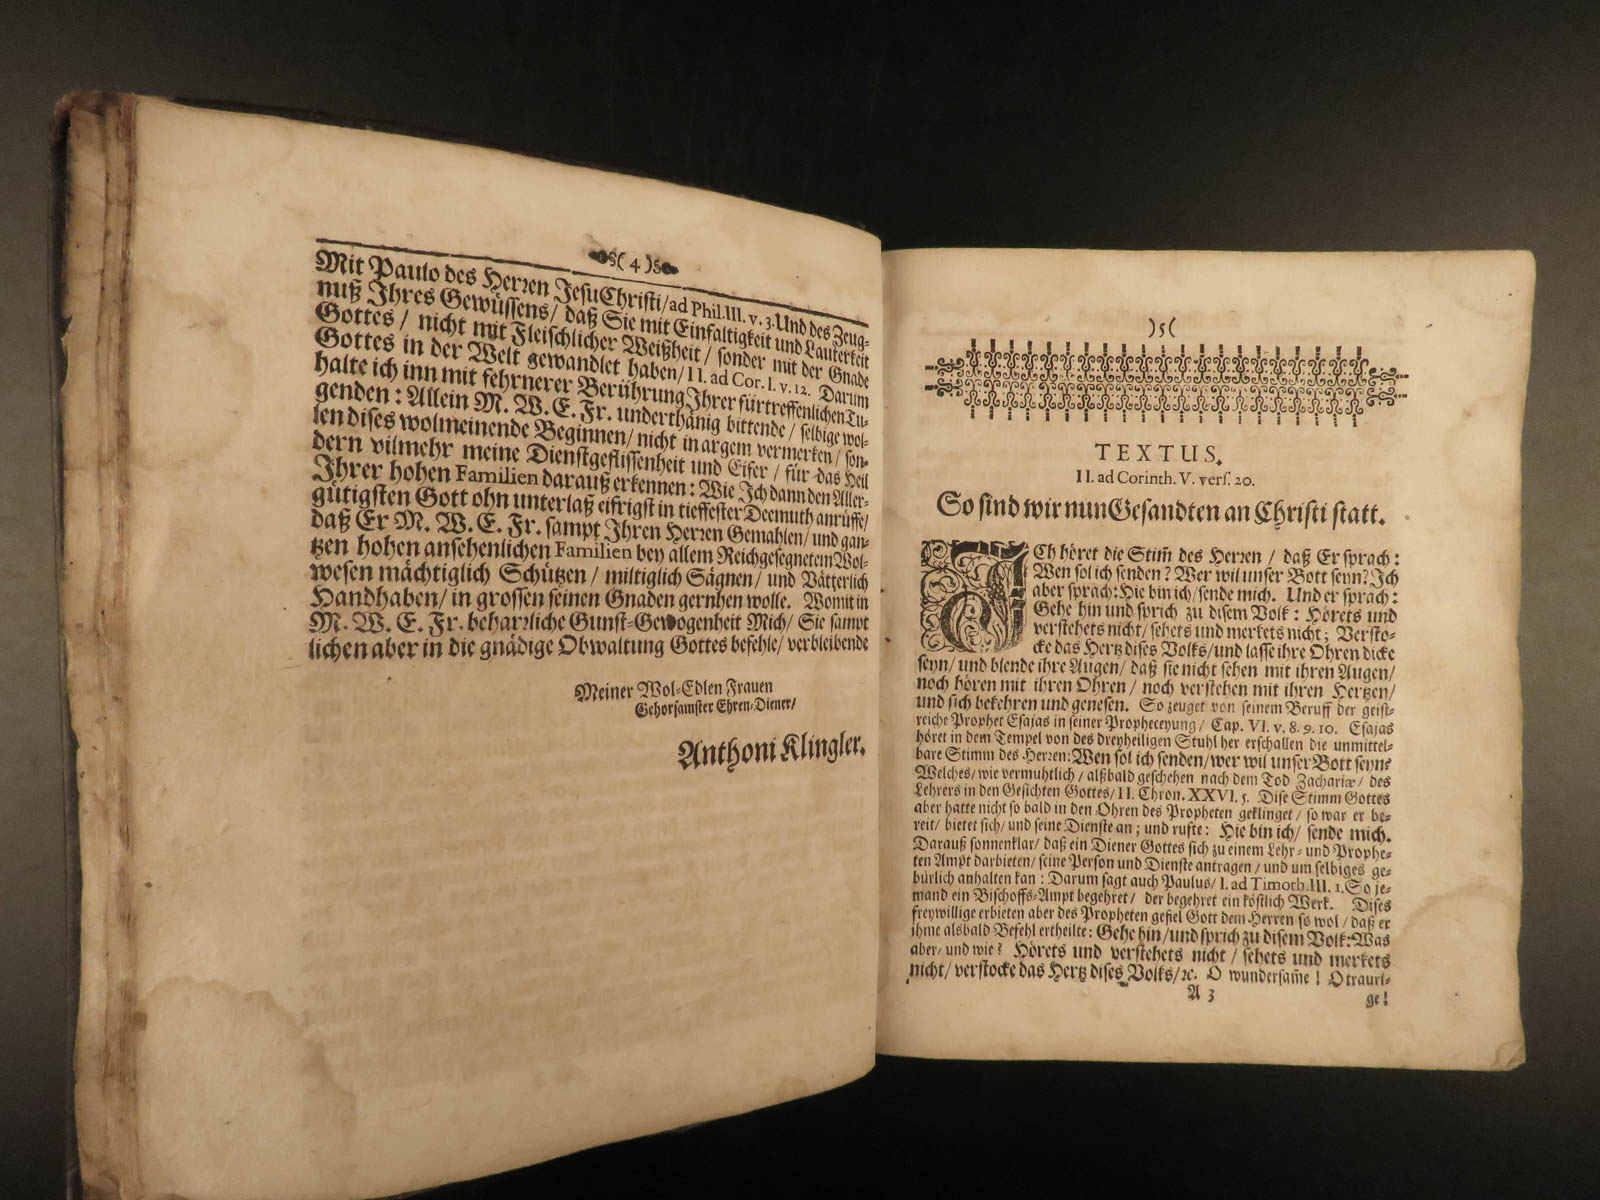 (4)
Mit Paulo des Herren JesuChristi/ ad Phil. III. v. 3. Und des Zeug-
nuß Ihres Gewüssens/ daß Sie mit Einfaltigkeit und Lauterkeit
Gottes/ nicht mit Fleischlicher Weißheit/ sonder mit der Gnade
Gottes in der Welt gewandlet haben/ II. ad Cor. I. v. 12. Darum
halte ich inn mit fehrnerer Berührung Ihrer fürtreffenlichen Tu-
genden: Allein M. W. E. Fr. underthänig bittende/ selbige wol-
len dises wolmeinende Beginnen/ nicht in argem vermerken/ son-
dern vilmehr meine Dienstgeflissenheit und Eifer/ für das Heil
Ihrer hohen Familien darauß erkennen: Wie Ich dann den Aller-
gütigsten Gott ohn unterlaß eifrigst in tieffester Deemuth anrüffe/
daß Er M. W. E. Fr. sampt Ihren Herren Gemahlen/ und gan-
tzen hohen ansehenlichen Familien bey allem Reichgesegnetem Wol-
wesen mächtiglich Schützen/ miltiglich Sägnen/ und Vätterlich
Handhaben/ in grossen seinen Gnaden geruhen wolle. Womit in
M. W. E. Fr. beharrliche Gunst-Gewogenheit Mich/ Sie sampt
lichen aber in die gnädige Obwaltung Gottes befehle/ verbleibende
Meiner Wol-Edlen Frauen
Gehorsamster Ehren-Diener/
Anthoni Klingler.
)5(
TEXTUS.
II. ad Corinth. V. vers. 20.
So sind wir nun Gesandten an Christi statt.
ICh höret die Stim̃ des Herren/ daß Er sprach:
Wen sol ich senden? Wer wil unser Bott seyn? Ich
aber sprach: Hie bin ich/ sende mich. Und er sprach:
Gehe hin und sprich zu disem Volk: Hörets und
verstehets nicht/ sehets und merkets nicht; Versto-
cke das Hertz dises Volks/ und lasse ihre Ohren dicke
seyn/ und blende ihre Augen/ daß sie nicht sehen mit ihren Augen/
noch hören mit ihren Ohren/ noch verstehen mit ihren Hertzen/
und sich bekehren und genesen. So zeuget von seinem Beruff der geist-
reiche Prophet Esajas in seiner Propheceyung/ Cap. VI. v. 8. 9. 10. Esajas
höret in dem Tempel von des dreyheiligen Stuhl her erschallen die unmittel-
bare Stimm des Herren: Wen sol ich senden/ wer wil unser Bott seyn?
Welches/ wie vermuhtlich/ alßbald geschehen nach dem Tod Zachariæ/ des
Lehrers in den Gesichten Gottes/ II. Chron. XXVI. 5. Dise Stimm Gottes
aber hatte nicht so bald in den Ohren des Propheten geklinget/ so war er be-
reit/ bietet sich/ und seine Dienste an; und rufte: Hie bin ich/ sende mich.
Darauß sonnenklar/ daß ein Diener Gottes sich zu einem Lehr- und Prophe-
ten Ampt darbieten/ seine Person und Dienste antragen/ und um selbiges ge-
bürlich anhalten kan: Darum sagt auch Paulus/ I. ad Timoth. III. 1. So je-
mand ein Bischoffs-Ampt begehret/ der begehret ein köstlich Werk. Dises
freywillige erbieten aber des Propheten gefiel Gott dem Herren so wol/ daß er
ihme alsbald Befehl ertheilte: Gehe hin/ und sprich zu disem Volk: Was
aber/ und wie? Hörets und verstehets nicht/ sehets und merkets
nicht/ verstocke das Hertz dises Volks/ ꝛc. O wundersam̃e! O trauri-
A 3 ge!